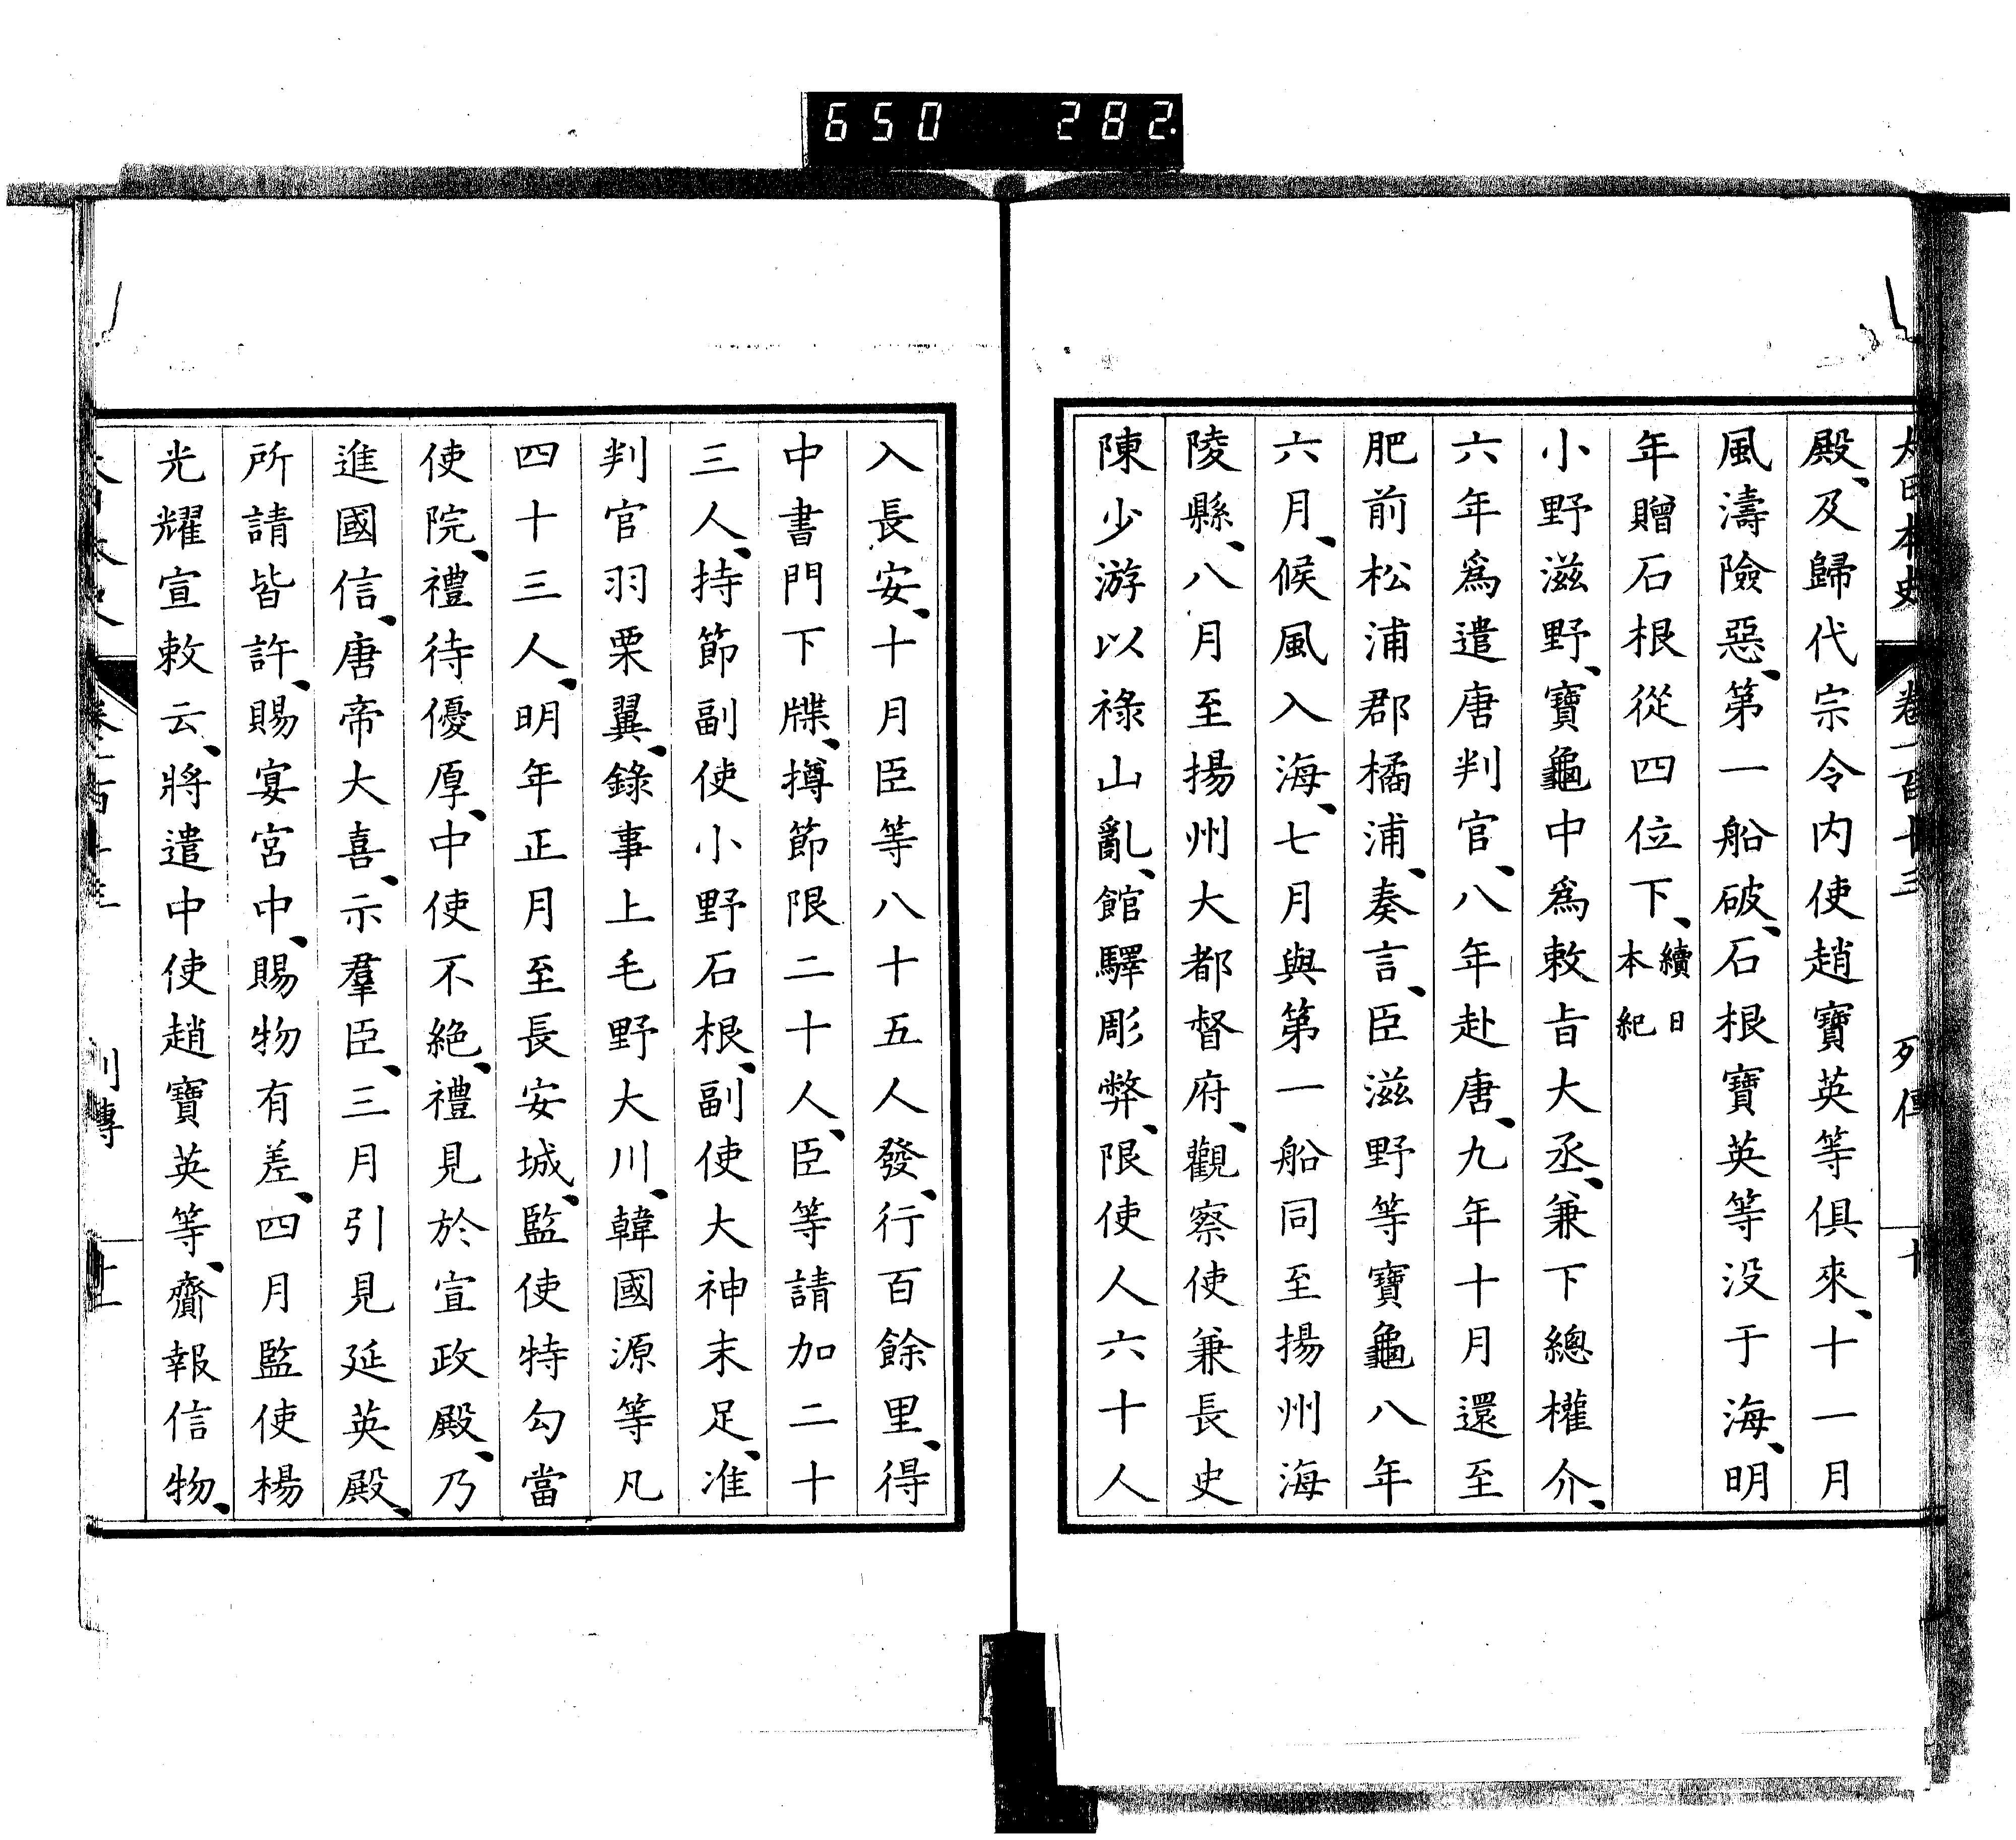 650 282
大日本史 卷一百十三 列傳 十
殿、及歸代宗令內使趙寶英等俱來、十一月
風濤險惡、第一船破、石根寶英等没于海、明
年贈石根從四位下、續日本紀
小野滋野、寶龜中爲敕旨大丞、兼下總權介、
六年爲遣唐判官、八年赴唐、九年十月還至
肥前松浦郡橘浦、奏言、臣滋野等寶龜八年
六月、候風入海、七月與第一船同至揚州海
陵縣、八月至揚州大都督府、觀察使兼長史
陳少游以祿山亂、館驛彫弊、限使人六十人
入長安、十月臣等八十五人發、行百餘里、得
中書門下牒、撙節限二十人、臣等請加二十
三人、持節副使小野石根、副使大神末足、准
判官羽栗翼、錄事上毛野大川、韓國源等凡
四十三人、明年正月至長安城、監使特勾當
使院、禮待優厚、中使不絶、禮見於宣政殿、乃
進國信、唐帝大喜、示羣臣、三月引見延英殿、
所請皆許、賜宴宮中、賜物有差、四月監使楊
光耀宣敕云、將遣中使趙寶英等、齎報信物、
列傳